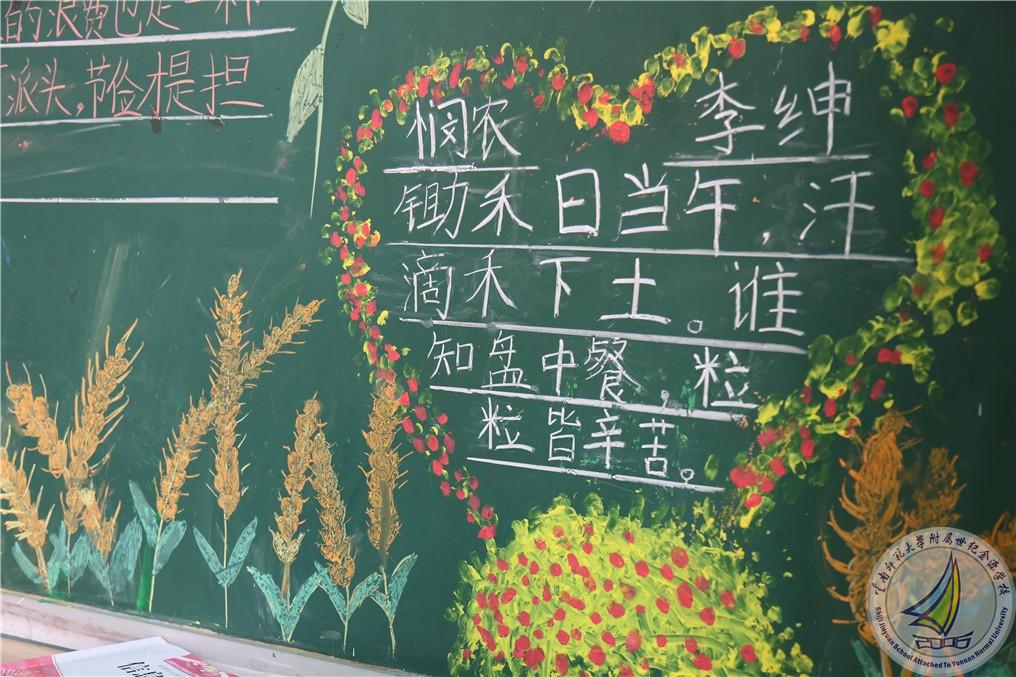 的浪费也是一种
派头,节俭提担
悯农 李绅
锄禾日当午,汗
滴禾下土。谁
知盘中餐,粒
粒皆辛苦。
雲南师范大學附属世纪金源学校
Shiji Jinyuan School Attached To Yunnan Normal University
2006